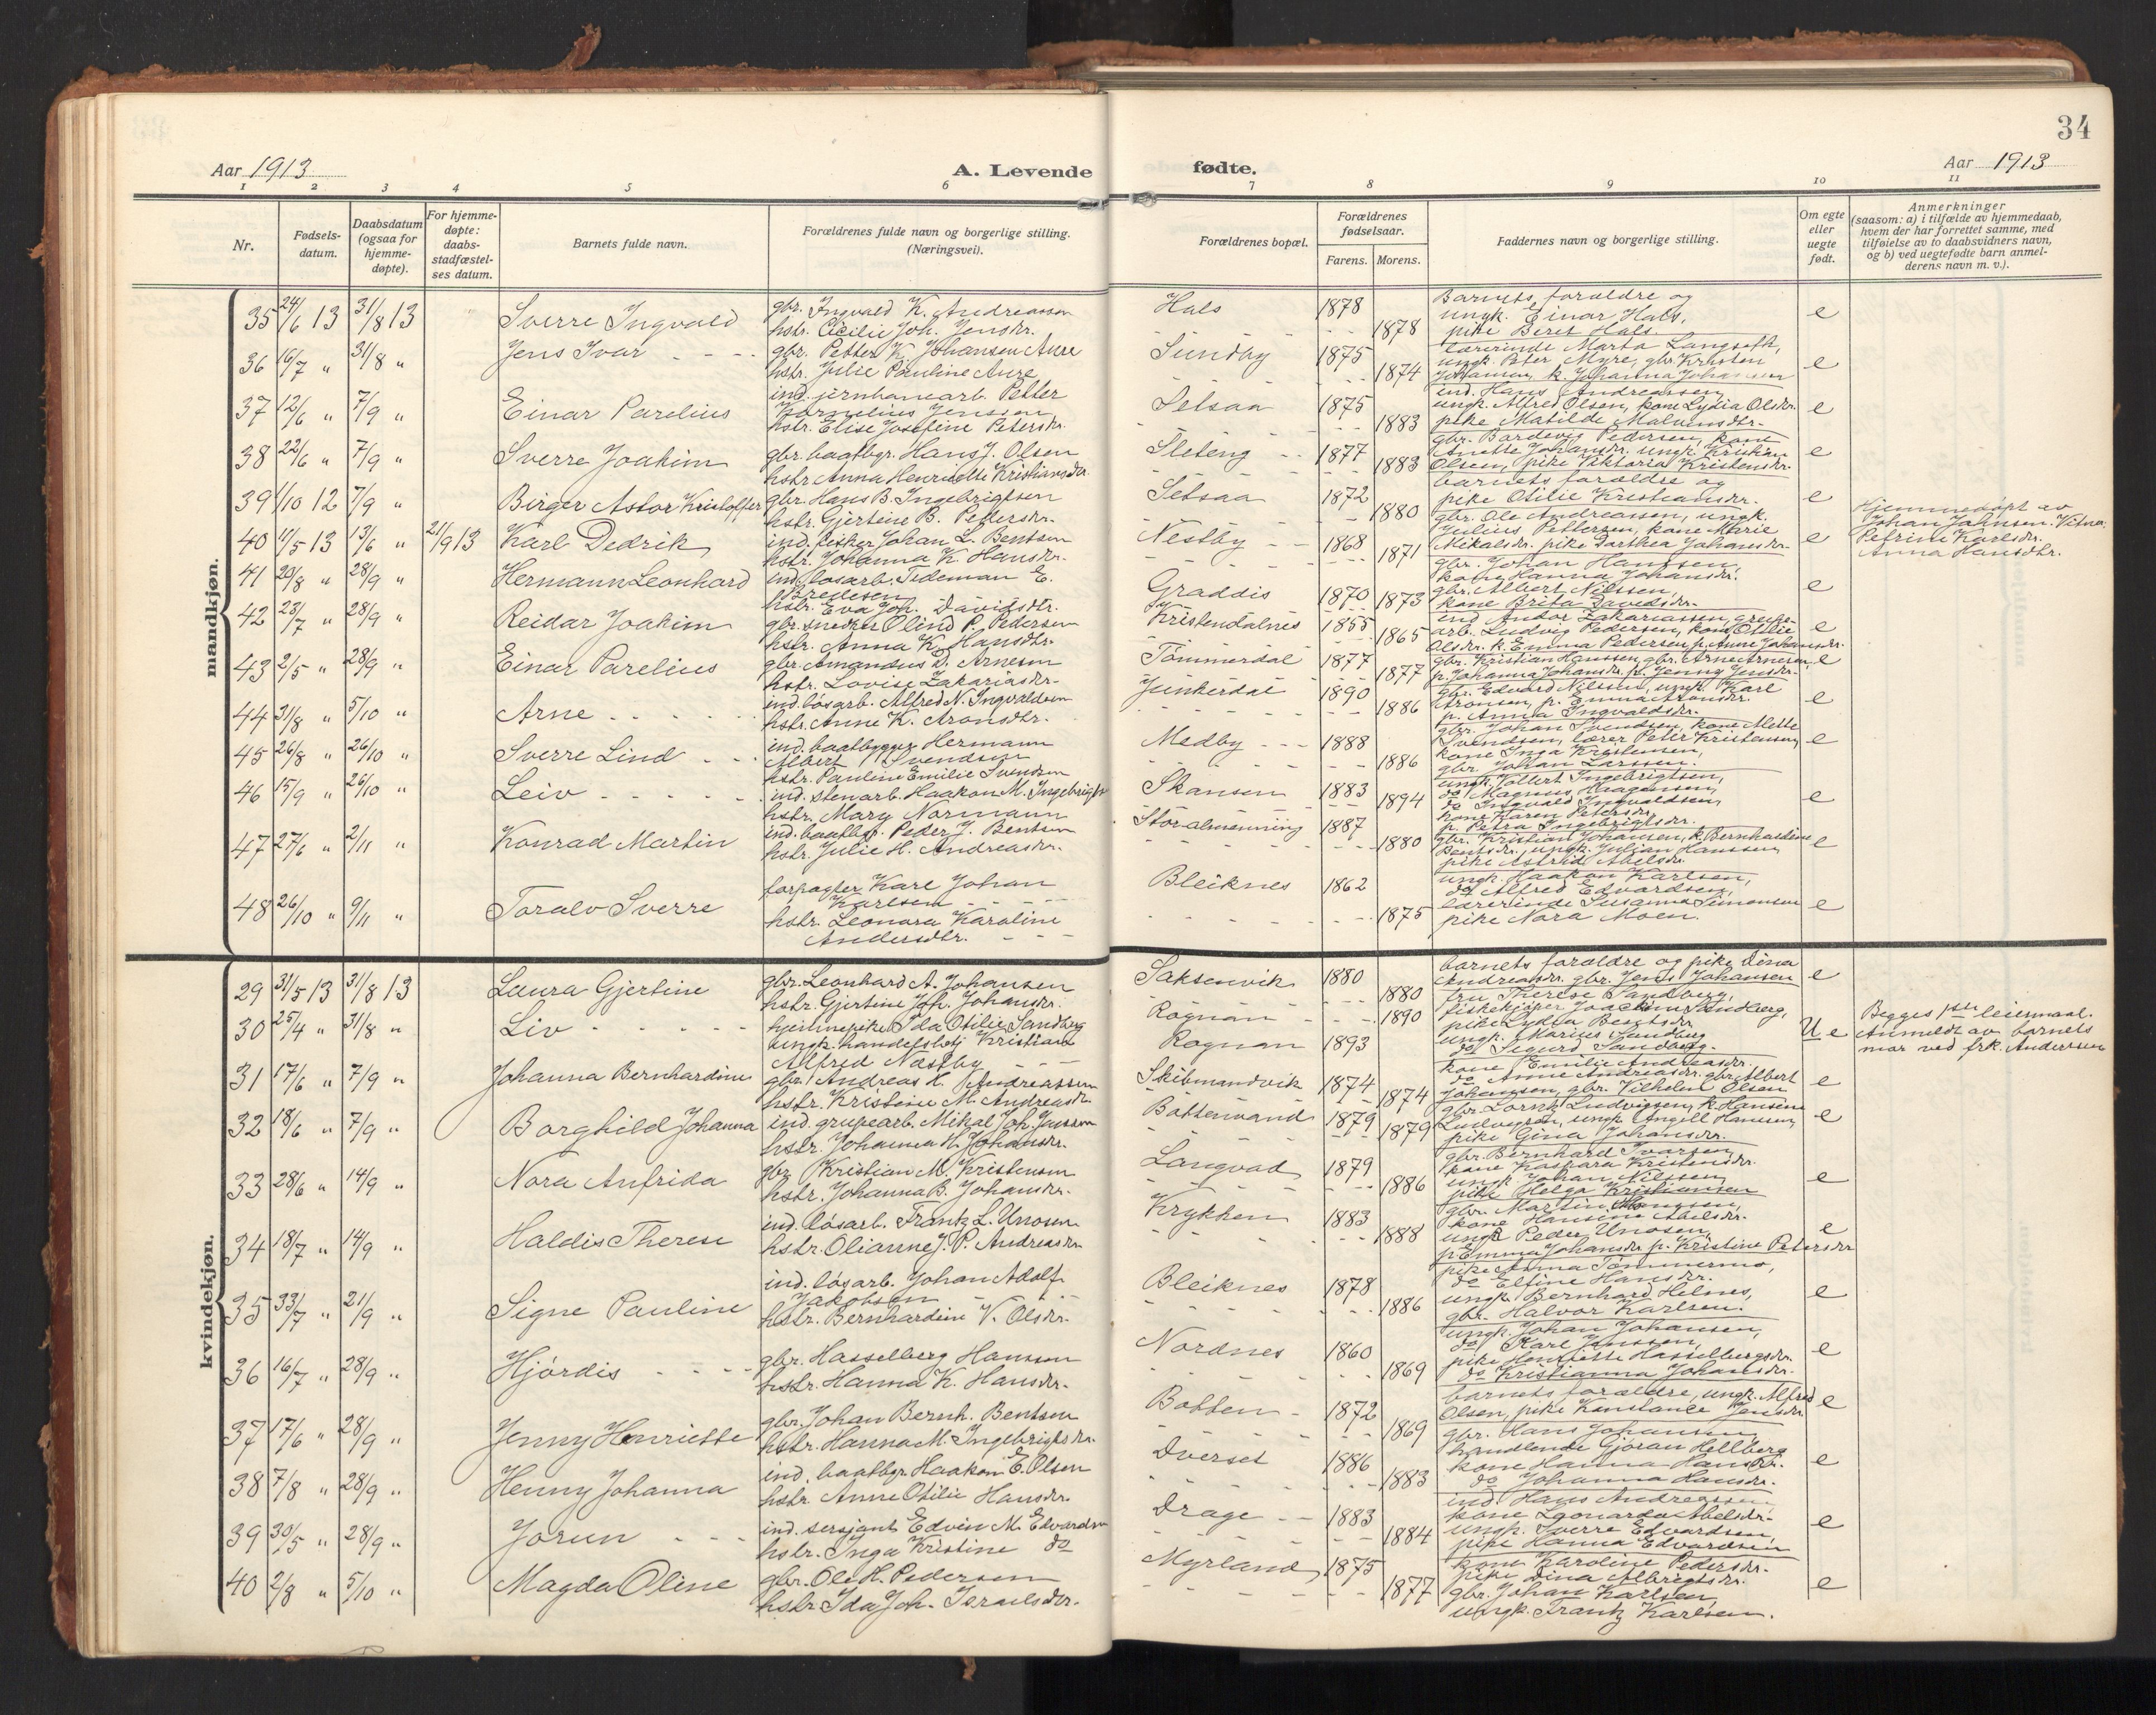 34
Aar 1913
A. Levende
fødte.
Aar 1913
1 2 3 4 5 6 7 8 9 10 11
Nr.
Fødselsdatum.
Daabsdatum (ogsaa for hjemmedøpte).
For hjemmedøpte: daabsstadfæstelses datum.
Barnets fulde navn.
Forældrenes fulde navn og borgerlige stilling. (Næringsvei).
Forældrenes bopæl.
Forældrenes fødselsaar.
Farens. Morens.
Faddernes navn og borgerlige stilling.
Om egte eller uegte født.
Anmerkninger (saasom: a) i tilfælde av hjemmedaab, hvem der har forrettet samme, med tilføielse av to daabsvidners navn, og b) ved uegtefødte barn anmelderens navn m. v.).
mandkjøn.
35 24/6 13 31/8 13 Sverre Ingvald gbr. Ingvald K. Andreassen Hals 1878 Barnets foraldre og e
hstr. Cecilie Joh. Jensdr. 1878 ungk. Einar Hals,
pike Beret Hals.
36 16/7 " 31/8 " Jens Ivar gbr. Petter K. Johansen Aure Sundby 1875 lærerinde Marta Langseth, e
hstr. Julie Pauline Aure 1874 ungk. Peter Myre, gbr. Kristen
Johansen, k. Johanna Johansen
37 12/6 " 7/9 " Einar Parelius ind. jernbanearb. Petter Setsaa 1875 ind. Hans Andreassen, e
Kornelius Jenssen ungk. Alfred Olsen, kone Lydia Olsdr.
hstr. Elise Josefine Petersdr. 1883 pike Matilde Malvinsdtr.
38 22/6 " 7/9 " Sverre Joakim gbr. baatbgr. Hans J. Olsen Sleteng 1877 gbr. Bardevig Pedersen, kone e
hstr. Anna Henriette Kristiansdr. 1883 Anette Johansdr. ungk. Kristian
Olsen, pike Viktoria Kristensdr.
39 1/10 12 7/9 " Birger Astor Kristoffer gbr. Hans B. Ingebrigtsen Setsaa 1872 barnets foraldre og e
hstr. Gjertine B. Pedersdr. 1880 pike Otilie Kristiansdr.
gbr. Ole Andreassen, ungk.
40 11/5 13 13/6 " 21/9 13 Karl Dedrik ind. fisker Johan L. Bentsen Nestby 1868 Julius Pettersen, kone Marie e Hjemmedøpt av
hstr. Johanna K. Hansdr. 1871 Mikalsdr. pike Darthea Johansdr. Johan Johnsen. Vitner
gbr. Johan Hanssen, Petrine Karlsdr.
kone Hanna Johansdr. Anna Hansdtr.
41 20/8 " 28/9 " Hermann Leonhard ind. løsarb. Tideman E. Graddis 1870 gbr. Albert Nilssen, e
Bredesen
hstr. Eva Joh. Davidsdtr. 1873 kone Brita Davidsdr.
42 23/7 " 28/9 " Reidar Joakim gbr. snedker Olind P. Pedersen Kristendalnes 1855 ind. Andor Zakariassen, grube- e
hstr. Anna K. Hansdtr. 1865 arb. Ludvig Pedersen, kone Otilie
Olsdr. k. Emma Pedersen p. Anne Johansdr.
43 2/5 " 28/9 " Einar Parelius gbr. Amandus D. Arnesen Tømmerdal 1877 gbr. Kristian Hanssen, gbr. Arne Arnesen, e
hstr. Lovise Zakariasdr. 1877 p. Johanna Johansdr. p. Jenny Jensdr.
44 31/8 " 5/10 " Arne ind. løsarb. Alfred N. Ingvaldsen Junkerdal 1890 gbr. Edvard Nilssen, ungk. Karl e
hstr. Anne K. Aronsdtr. 1886 Aronsen, p. Emma Aronsdr.
p. Anna Ingvaldsdr.
45 26/8 " 26/10 " Sverre Lind ind. baatbygger Hermann Medby 1888 gbr. Johan Svendsen, kone Mette e
Albert Svendsen Svendsen, lærer Peter Kristensen,
hstr. Pauline Emilie Svendsen 1886 kone Inga Kristensen,
gbr. Johan Larssen.
46 15/9 " 26/10 " Leiv ind. stenarb. Haakon M. Ingebrigts Skansen 1883 ungk. Vollert Ingebrigtsen, e
hstr. Mary Normann 1894 do Magnus Haagensen,
do Ingvald Ingvaldsen,
kone Karen Petersdr.
p. Petra Ingebrigtsdr.
47 27/6 " 2/11 " Konrad Martin ind. baatbgr. Peder J. Bentsen Storalmenning 1887 gbr. Kristian Johansen, k. Bernhardine e
hstr. Julie H. Andreasdr. 1880 Bentsdr., ungk. Julian Hanssen,
pike Astrid Abelsdr.
48 26/10 " 9/11 " Toralv Sverre forpagter Karl Johan Bleiknes 1862 ungk. Haakon Karlsen, e
Karlsen do Alfred Edvardsen,
hstr. Leonora Karoline 1875 lærerinde Susanna Simonsen
Andersdtr. pike Nora Moen.
kvindekjøn.
29 31/5 13 31/8 13 Laura Gjertine gbr. Leonhard A. Johansen Saksenvik 1880 barnets foraldre og pike Dina e
hstr. Gjertine Joh. Johansdr. 1880 Andreasdr. gbr. Jens Johansen
30 25/4 " 31/8 " Liv hjemmepike Ida Otilie Sandberg Rognan 1890 fru Therese Sandberg, U e Begges 1ste leiermaal.
ungk. handelsbetj. Kristian Rognan 1893 fiskekjøper Joachim Sandberg, Anmeldt av barnets
Alfred Næstby pike Lydia Bentsdr. mor ved frk. Anderssen
ungk. Marius Sandberg
do Sigurd Sandberg.
31 17/6 " 7/9 " Johanna Bernhardine gbr. Andreas K. Andreassen Skibmandvik 1874 kone Emilie Andreasdr. e
hstr. Kristine M. Andreasdr. 1874 do Anne Andreasdr. gbr. Albert
Johansen, gbr. Vilhelm Olsen
32 18/6 " 7/9 " Borghild Johanna ind. grupearb. Mikal Joh. Jenssen Bottenvand 1879 gbr. Lorntz Ludvigsen, k. Hansine e
hstr. Johanna H. Johansdr. 1879 Ludvigsen, ungk. Angell Hansen,
pike Gina Johansdr.
33 28/6 " 14/9 " Nora Anfrida gbr. Kristian M. Kristensen Langvad 1879 gbr. Bernhard Ivarsen, e
hstr. Johanna B. Johansdr. 1886 kone Kaspara Kristensdr.
ungk. Johan Nilssen,
pike Helga Kristiansen
34 18/7 " 14/9 " Haldis Therese ind. løsarb. Frantz L. Unosen Krykken 1883 gbr. Martin e
hstr. Olianne J. P. Andreasdr. 1888 kone Hansine Abelsdr.
ungk. Peder Unosen,
p. Emma Johansdr. p. Kristine Petersdr.
35 33/7 " 21/9 " Signe Pauline ind. løsarb. Johan Adolf Bleiknes 1878 pike Anna Tømmermo, e
Jakobsen do Elfine Hansdr.
hstr. Bernhardine V. Olsdr. 1886 ungk. Bernhard Helnes,
gbr. Halvor Karlsen.
36 16/7 " 28/9 " Hjørdis gbr. Hasselberg Hanssen Nordnes 1860 ungk. Johan Johansen, e
hstr. Hanna K. Hansdr. 1869 do Karl Janssen,
pike Henriette Hasselbergsdr.
do Kristianna Johansdr.
37 17/6 " 28/9 " Jenny Henriette gbr. Johan Bernh. Bentsen Botten 1872 barnets foraldre, ungk. Alfred e
hstr. Hanna M. Ingebrigtsdr. 1869 Olsen, pike Konstance Jensdr.
gbr. Hans Johansen
38 7/8 " 28/9 " Henny Johanna ind. baatbgr. Haakon E. Olsen Dverset 1886 handlende Gjøran Hellberg e
hstr. Anne Otilie Hansdr. 1883 kone Hanna Hansdr.
do Johanna Hansdr.
39 30/5 " 28/9 " Jorun ind. sersjant Edvin M. Edvardsen Drage 1883 ind. Hans Andreassen e
hstr. Inga Kristine do 1884 kone Leonarda Abelsdr.
ungk. Sverre Edvardsen,
pike Hanna Edvardsen
40 2/8 " 5/10 " Magda Oline gbr. Ole H. Pedersen Myrland 1875 kone Karoline Pedersdr. e
hstr. Ida Joh. Israelsdtr. 1877 pike Dina Albrigtsdr.
gbr. Johan Karlsen
ungk. Frantz Karlsen.